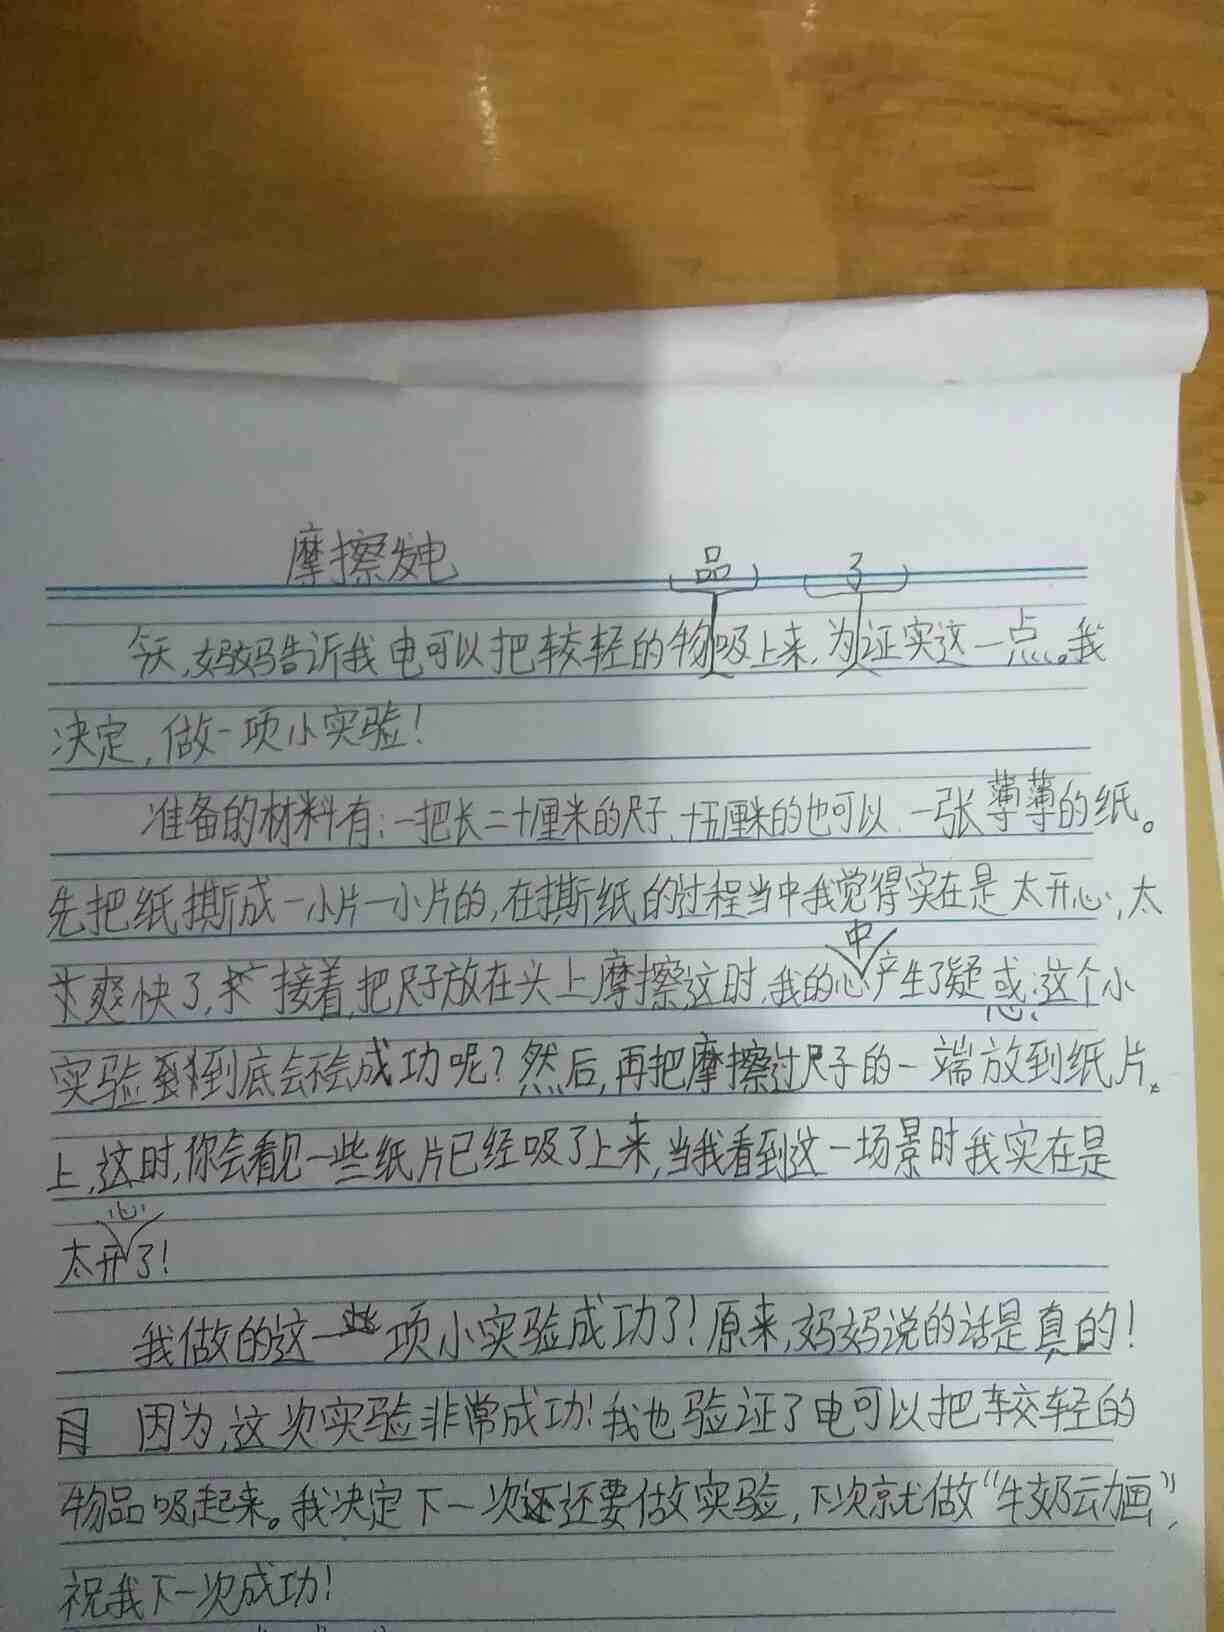 摩擦发电
今天,妈妈告诉我电可以把较轻的物品吸上来,为了证实这一点。我
决定,做一项小实验!
准备的材料有:一把长二十厘米的尺子、十五厘米的也可以、一张薄薄的纸。
先把纸撕成一小片一小片的,在撕纸的过程当中我觉得实在是太开心,太
爽快了,接着,把尺子放在头上摩擦这时,我的心中产生了疑惑:这个小
实验到底会不会成功呢?然后,再把摩擦过尺子的一端放到纸片
上,这时,你会看见一些纸片已经吸了上来,当我看到这一场景时我实在是
太开心了!
我做的这一项小实验成功了!原来,妈妈说的话是真的!
因为,这次实验非常成功!我也验证了电可以把较轻的
物品吸起来。我决定下一次还要做实验,下次就做“牛奶动画”,
祝我下一次成功!